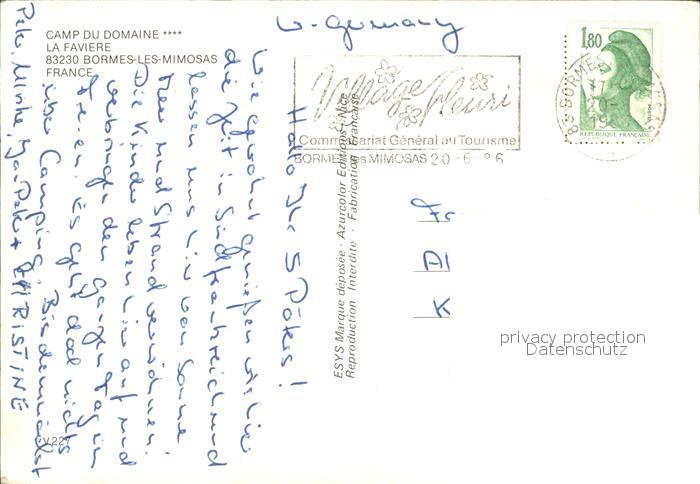 CAMP DU DOMAINE ****
LA FAVIERE
83230 BORMES-LES-MIMOSAS
FRANCE
Hallo Ihr 5 Pöters!
Wie gewohnt genießen wir hier
die Zeit in Südfrankreich und
lassen uns hier von Sonne
Meer und Strand verwöhnen.
Die Kinder leben hier auf und
verbringen den ganzen Tag im
Freien. Es geht doch nichts
über Camping. Bis demnächst
Peter, Ulrike, Jan-Peter + CHRISTINE
V 227
ESYS Marque déposée - Azurcolor Editions - Nice
Reproduction Interdite - Fabrication Française
W-Germany
Village fleuri
Commissariat Général au Tourisme
BORMES les MIMOSAS 20-6-86
83 BORMES
1,80
REPUBLIQUE FRANÇAISE
Fr
A
K
privacy protection
Datenschutz